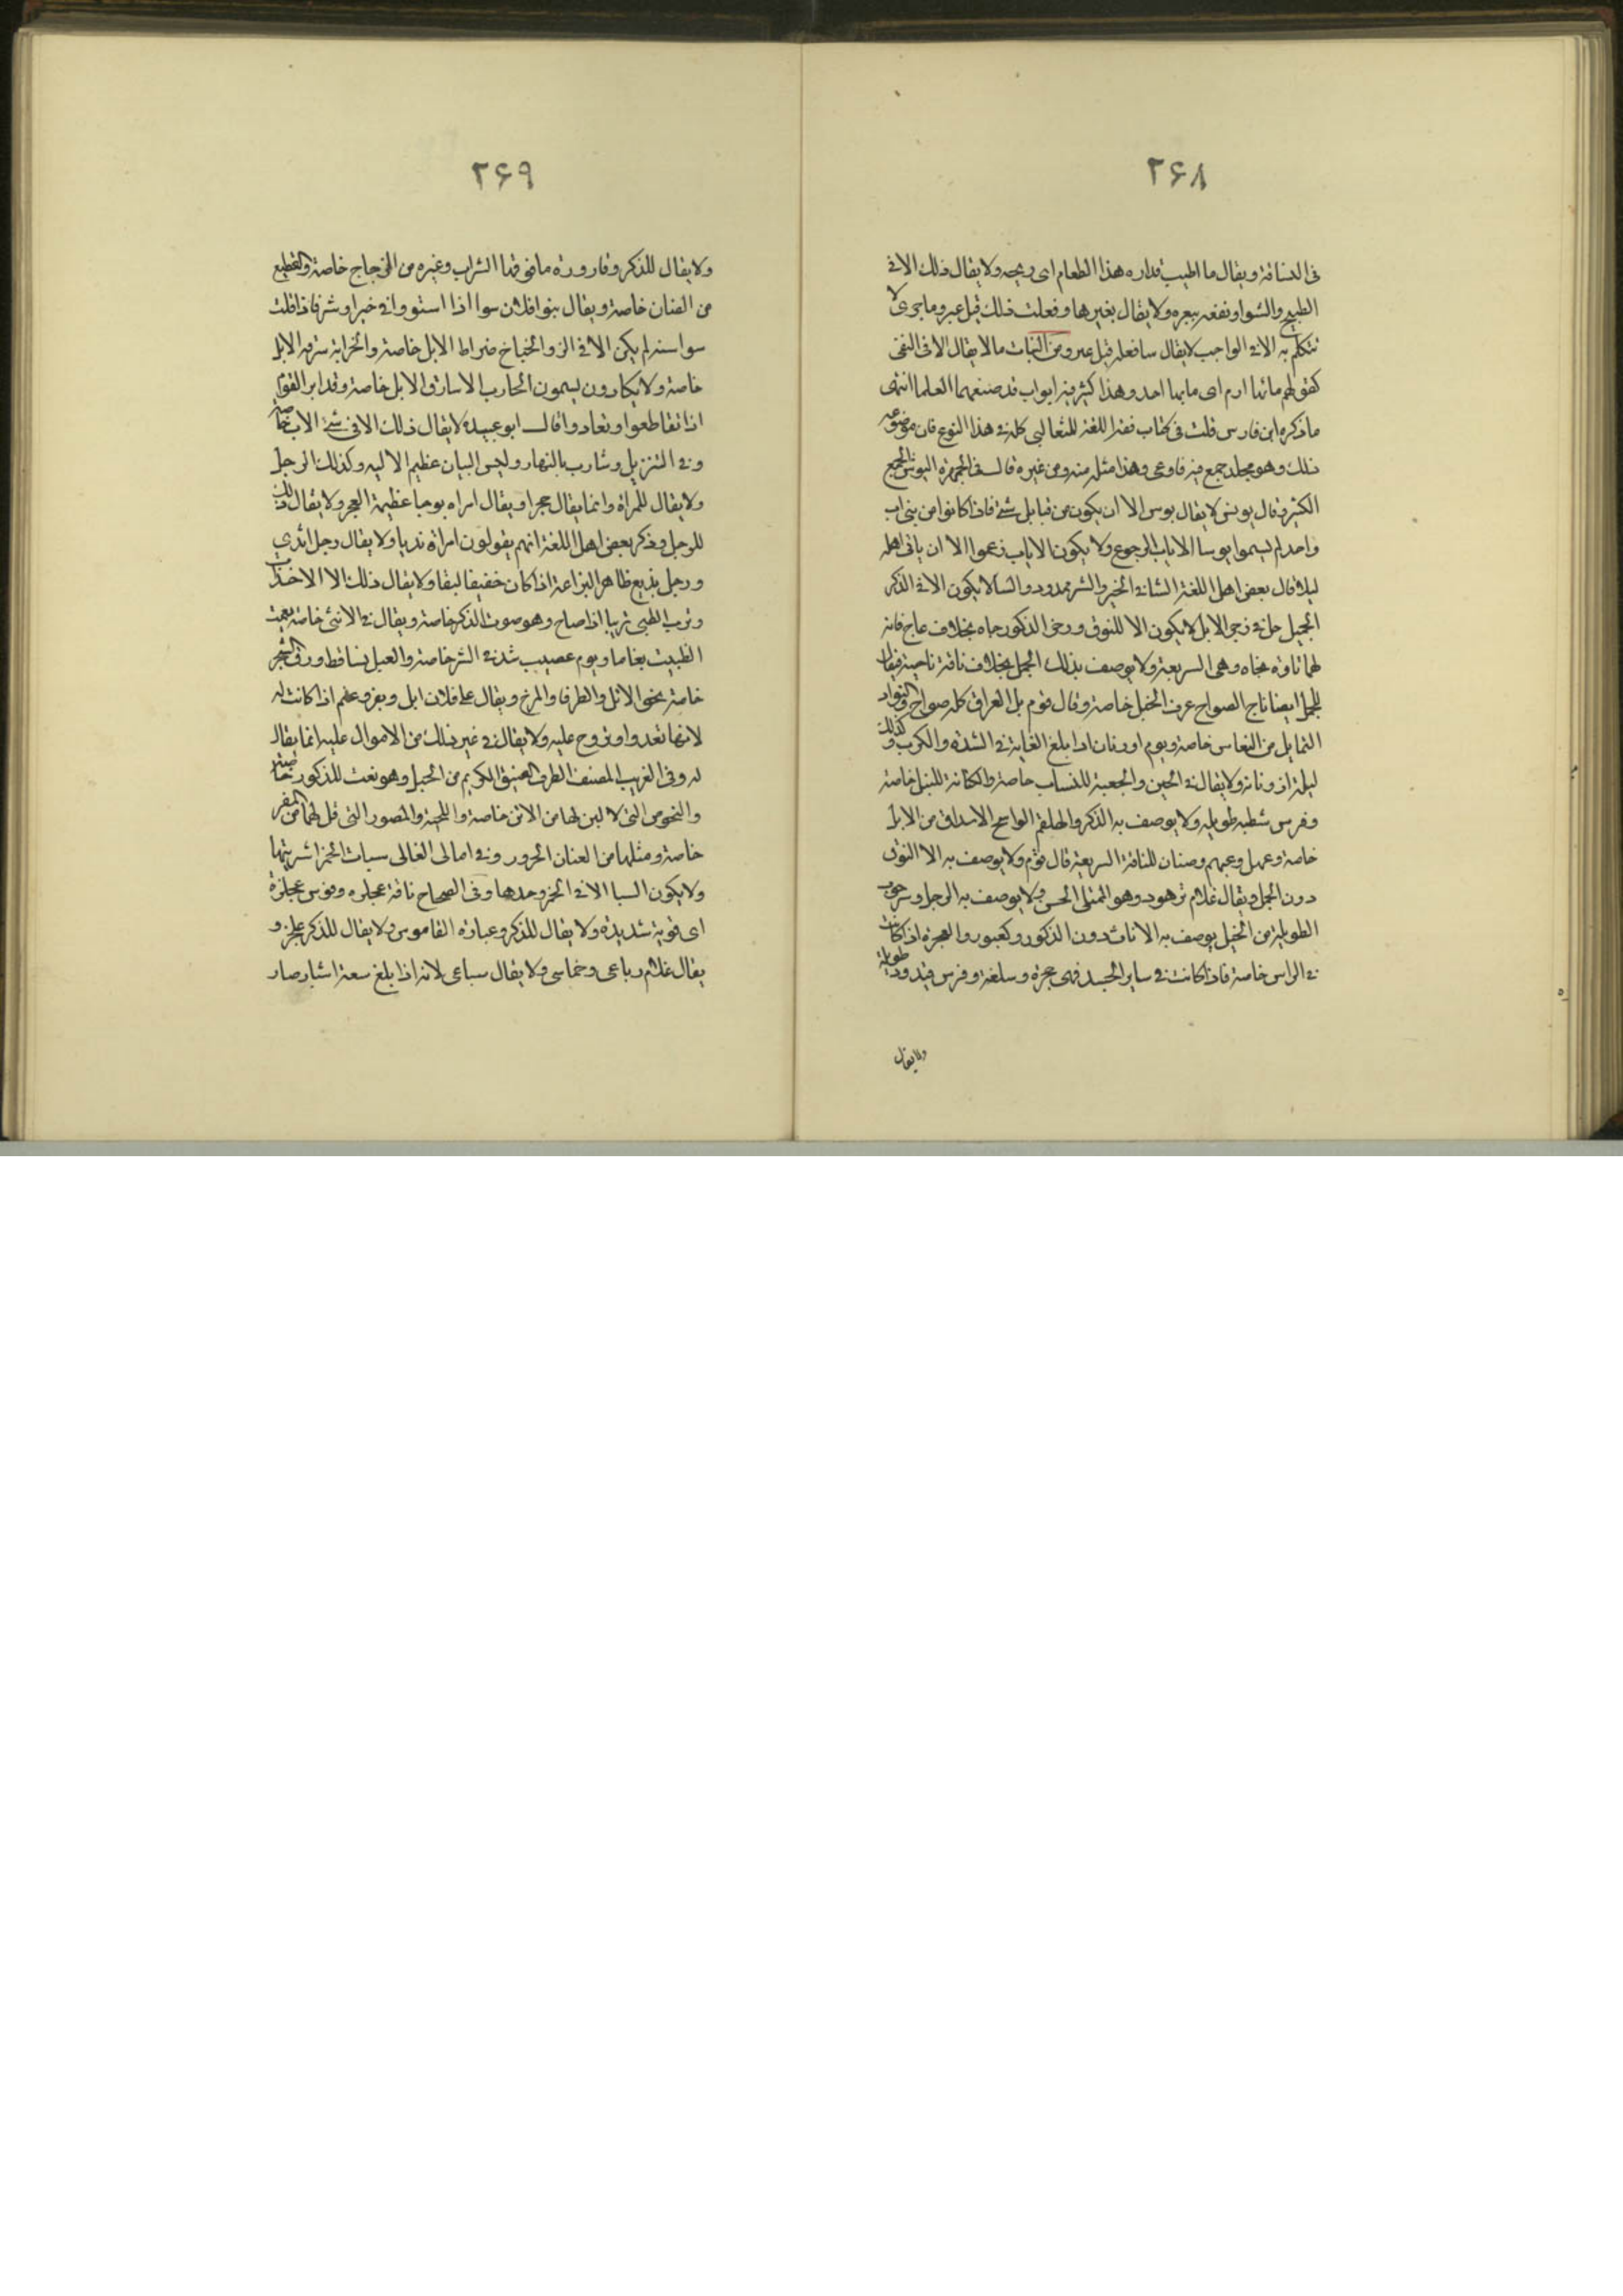 ٢۶٨
فى الدسافة ويقال ما اطيب قداره هذا الطعام اى ريحه ولا يقال ذلك الا فى
الطبيخ والشوا ونفغه ببعره ولا يقال بغيرها وفعلت ذلك قبل عير وما جرى لا
نتكلم به الا فى الواجب لا يقال سافعله قبل عير ومن النبات مالا يقال الا فى النفى
كقولهم ما بها ارم اى ما بها احد وهذا كثير فيه ابواب قد صنفها العلما انتهى
ما ذكره ابن فارس قلت فى كتاب فقه اللغة للثعالبى كله فى هذا النوع فان موضوعه
ذلك وهو مجلد جمع فيه فاوعى وهذا مثله منه ومن غيره قال فى الجمهرة البوش الجمع
الكثير قال يونس لا يقال بوس الا ان يكون من قبايل شتى فاذا كانوا من بنى اب
واحد لم يسموا بوسا الاياب الرجوع ولا يكون الاياب زعموا الا ان ياتى اهله
ليلا قال بعض اهل اللغة الثنا فى الخير والشر ممدود والنثا لا يكون الا فى الذكر
الجميل حل فى زجر الابل لا يكون الا للنوق وزجر الذكور جاه بخلاف عاج فانه
لهما ناقة نجاه وهى السريعة ولا يوصف بذلك الجمل بخلاف ناقة ناجية فيقال
للجمل ايضا ناج الصواح عرق الخيل خاصة وقال قوم بل العراق كله صواح والنواد
التمايل من النعاس خاصة ويوم اورنان اذا بلغ الغاية فى الشدة والكرب وكذلك
ليلة ارونانة ولا يقال فى الحين والجعبة للنساب خاصة والكنانة للنبل خاصة
وفرس شطبه طويله ولا يوصف به الذكر والهلقم الواسع الاشداق من الابل
خاصة وعيهل وعيهم وصنان للناقة السريعة قال قوم ولا يوصف به الا النوق
دون الجمل ويقال غلام ثوهد وهو الممتلى الحسن ولا يوصف به الرجل وسرحوب
الطويلة من الخيل يوصف به الاناث دون الذكور وكعبور والعجرة اذا كانت
فى الراس خاصة فاذا كانت فى ساير الجسد فهى عجرة وسلعة وفرس قيدود طويلة
ولا يقال
٢۶٩
ولا يقال للذكر وقارورة ما قر فيها الشراب وغيره من الزجاج خاصة والقطيع
من الضان خاصة ويقال بنوا فلان سوا اذا استووا فى خير او شر فاذا قلت
سواسيه لم يكن الا فى الشر والخباخ ضراط الابل خاصة والخرابة سرقه الابل
خاصة ولا يكادون يسمون الخارب الا سارق الابل خاصة وتدابر القوم
اذا تقاطعوا وتعادوا قال ابو عبيدة لا يقال ذلك الا فى بنى الاب خاصة
وفى التنزيل وسارب بالنهار عظيم الاليه وكذلك الرجل
ولا يقال للمراة وانما يقال عجزا ويقال امراه بوصا عظيمة العجز ولا يقال ذلك
للرجل وذكر بعض اهل اللغة انهم يقولون امراة ثديا ولا يقال رجل اثدى
ورجل بزيع ظاهر البزاعة اذا كان خفيفا لبقا ولا يقال ذلك الا للاحداث
ونزب الظبى نزيبا اذا صاح وهو صوت الذكر خاصة ويقال فى الانثى خاصة بغمت
الظبيت بغاما ويوم عصيب شديد فى الشر خاصة والعبل تساقط ورق الشجر
خاصة نحو الاثل والطرفا والمرخ ويقال على فلان ابل وبقر وغنم اذا كانت له
لانها تغدوا وتروح عليه ولا يقال فى غير ذلك من الاموال عليه انما يقال
له وفى الغريب المصنف الطرف العتيق الكريم من الخيل وهو نعت للذكور خاصة
والنحوص التى لا لبن لها من الاتن خاصة واللجبة والمصور التى قل لبنها من المعز
خاصة ومثلها من الضان الجدود وفى امالى القالى سبات الخمر اشريتها
ولا يكون السبا الا فى الخمر وحدها وفى الصحاح ناقة عجلزه وفرس عجلزة
اى قوية شديدة ولا يقال للذكر وعبارة القاموس ولا يقال للذكر عجلز و
يقال غلام رباعى وخماسى ولا يقال سباعى لانه اذا بلغ سبعة اشبار صار